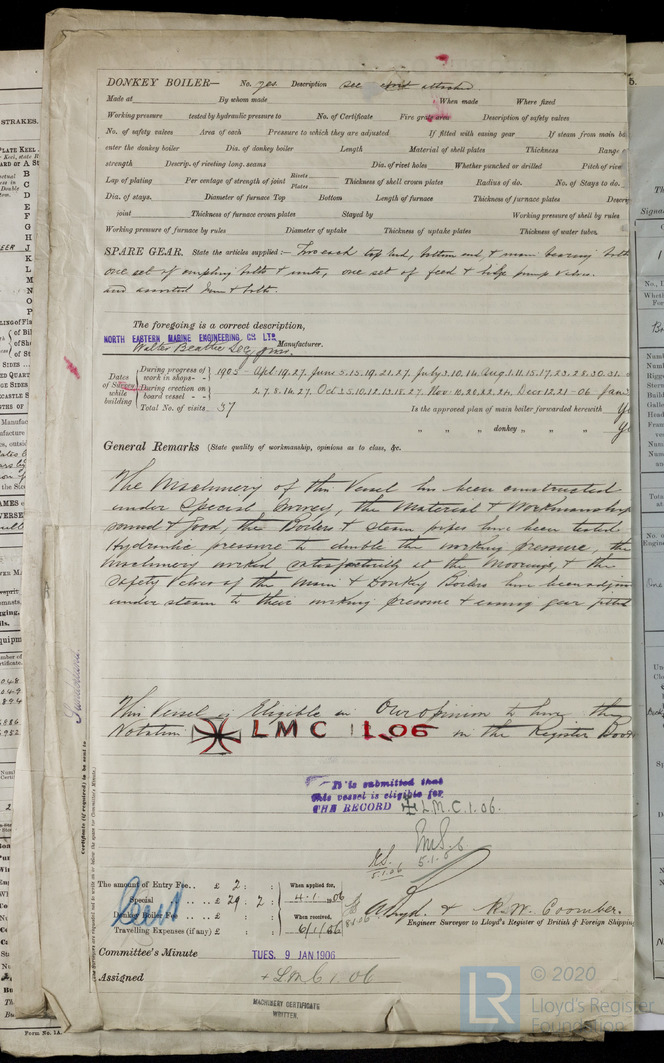 DONKEY BOILER— No. yes Description see report attached
Made at By whom made When made Where fixed
Working pressure tested by hydraulic pressure to No. of Certificate Fire grate area Description of safety valves
No. of safety valves Area of each Pressure to which they are adjusted If fitted with easing gear If steam from main boi
enter the donkey boiler Dia. of donkey boiler Length Material of shell plates Thickness Range o
strength Descrip. of riveting long. seams Dia. of rivet holes Whether punched or drilled Pitch of rive
Lap of plating Per centage of strength of joint Rivets Plates Thickness of shell crown plates Radius of do. No. of Stays to do.
Dia. of stays. Diameter of furnace Top Bottom Length of furnace Thickness of furnace plates Descri
joint Thickness of furnace crown plates Stayed by Working pressure of shell by rules
Working pressure of furnace by rules Diameter of uptake Thickness of uptake plates Thickness of water tubes
SPARE GEAR. State the articles supplied:— Two each top end, bottom end, & main bearing bolts
one set of coupling bolts & nuts, one set of feed & bilge pump valves.
and assorted iron & bolts.
The foregoing is a correct description,
NORTH EASTERN MARINE ENGINEERING Co LTD
Walter Beattie Sec. Manufacturer.
Dates of Survey while building
During progress of work in shops - - 1905 - Apl. 19. 27. June 5. 13. 19. 21. 27. July 3. 10. 14. Aug. 1. 11. 15. 17. 23. 28. 30. 31.
During erection on board vessel - - 2. 7. 8. 14. 27. Oct 3. 5. 10. 12. 13. 18. 27. Nov. 10. 20. 22. 24. Decr 12. 21 - 06 Jan
Total No. of visits 37 Is the approved plan of main boiler forwarded herewith Ye
" " " donkey " " " Ye
General Remarks (State quality of workmanship, opinions as to class, &c.
The Machinery of this Vessel has been constructed
under Special Survey, the Material & Workmanship
sound & good, the Boilers & steam pipes have been tested
Hydraulic pressure to double the working pressure, the
Machinery worked satisfactorily at the moorings, & the
safety valves of the Main & Donkey Boilers have been adjus
under steam to their working pressure & easing gear fitted
This Vessel is Eligible in Our opinion to have the
Notation LMC 1.06 in the Register Book
It is submitted that
this vessel is eligible for
THE RECORD + L.M.C. 1.06.
5.1.06
5.1.06
The amount of Entry Fee.. £ 2 : : When applied for,
Special .. .. £ 29 : 2 : 4.1.06
Donkey Boiler Fee .. .. £ : : When received,
Travelling Expenses (if any) £ : : 6/1/06
A Boyd. & R. W. Coomber.
Engineer Surveyor to Lloyd's Register of British & Foreign Shipping
Committee's Minute TUES. 9 JAN 1906
Assigned + L.M.C. 1.06
MACHINERY CERTIFICATE
WRITTEN
Sunderland
Certificate (if required) to be sent to
Form No. 1A.
© 2020
Lloyd's Register
Foundation